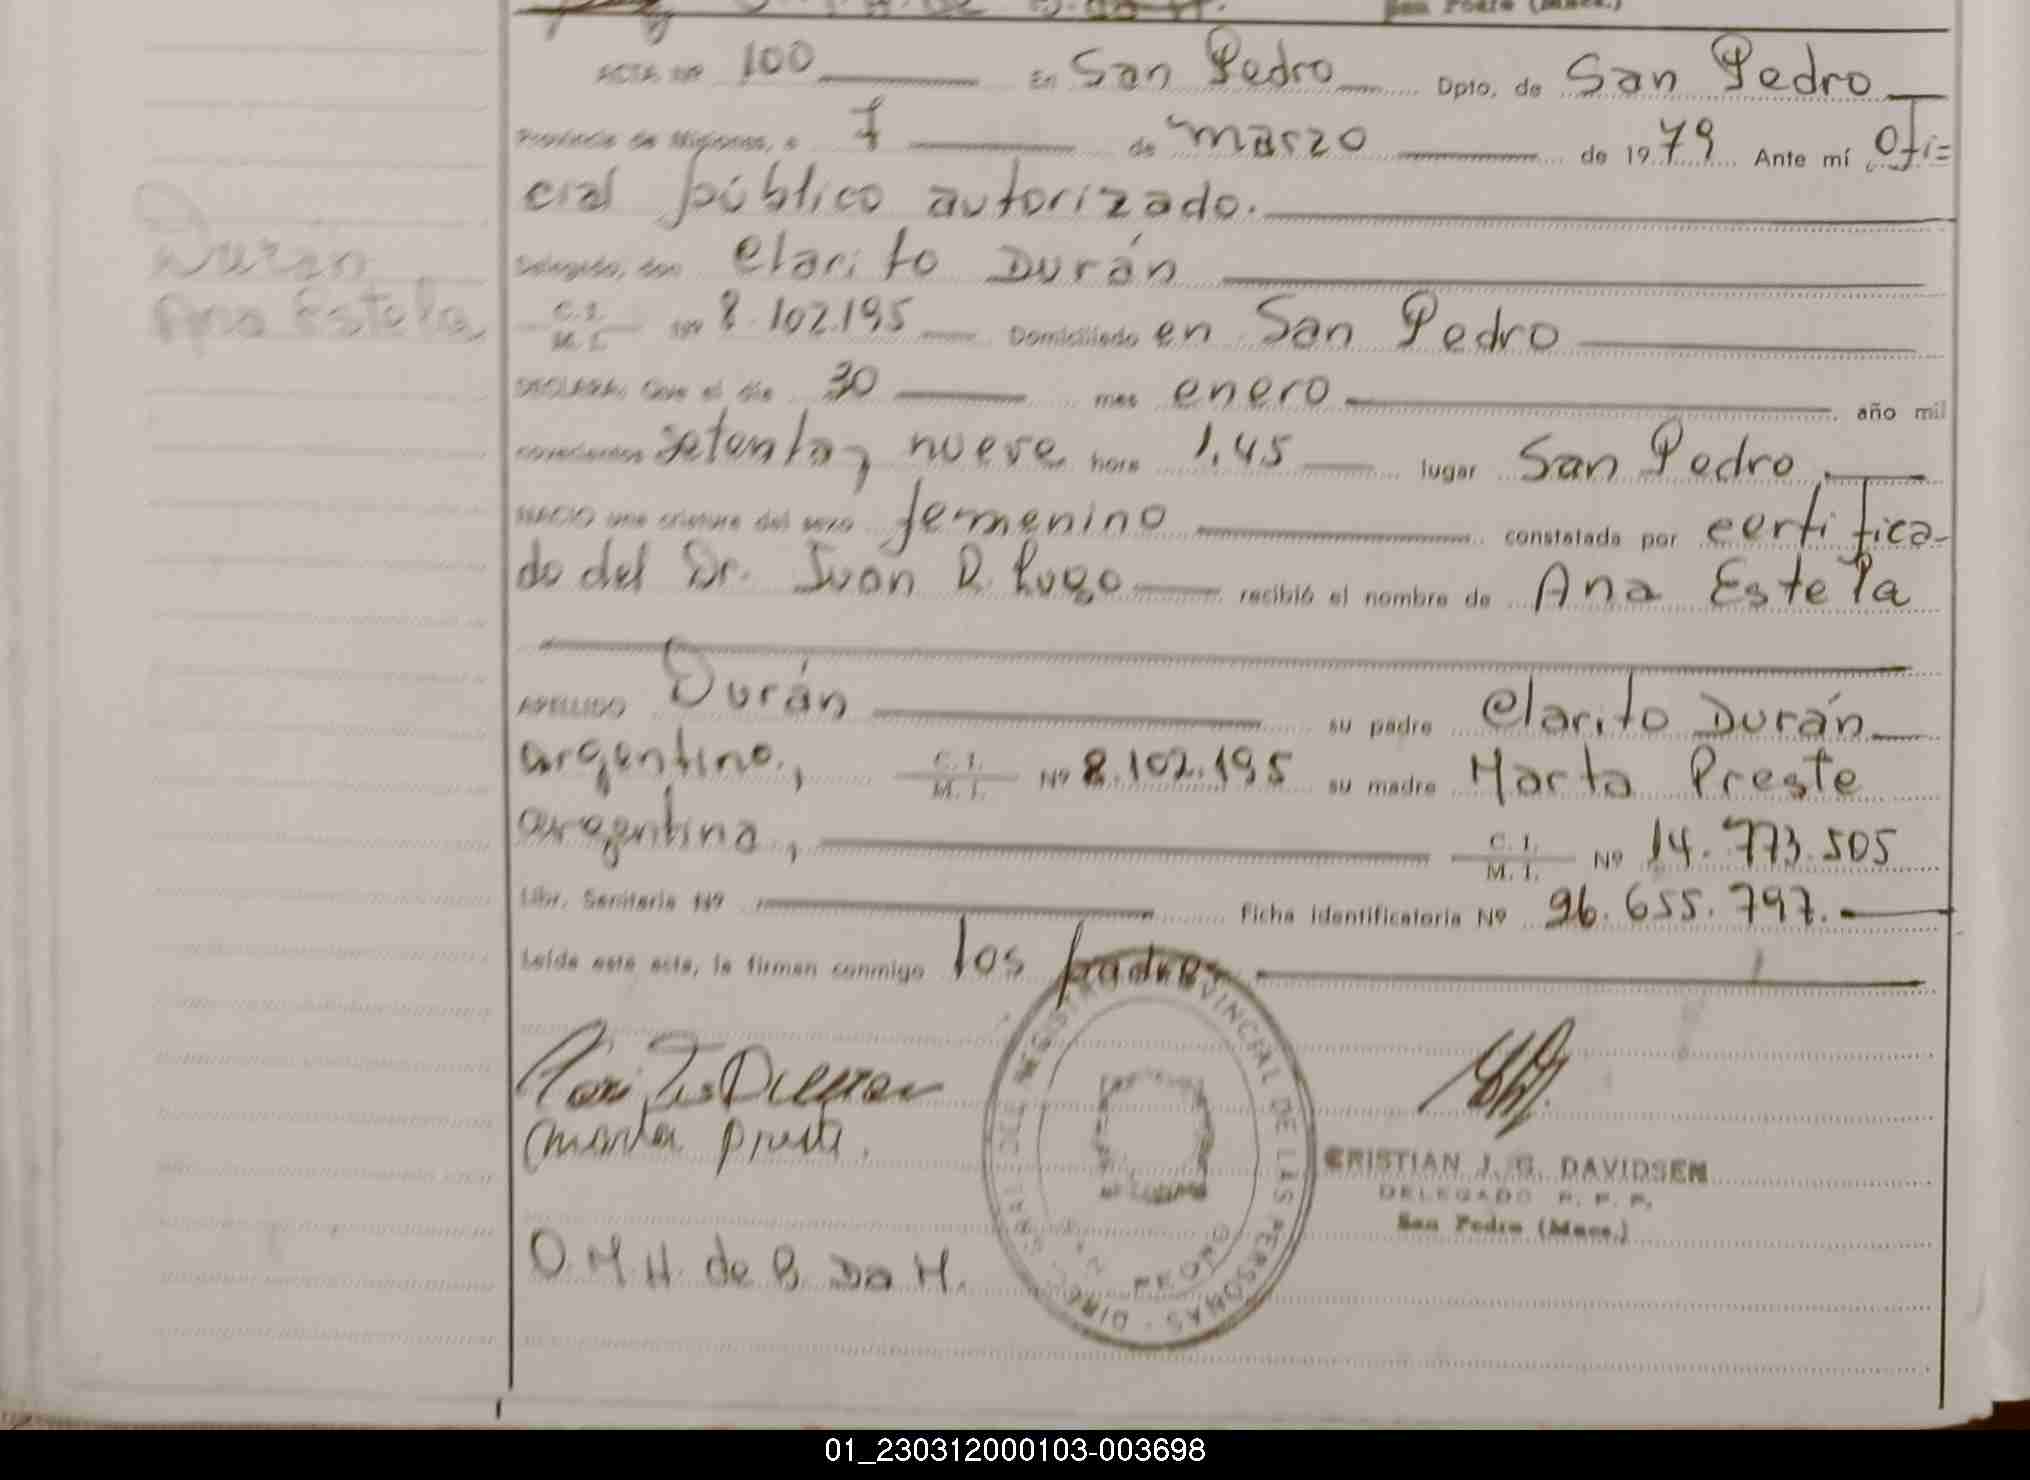 San Pedro (Mnes.)
ACTA Nº 100 En San Pedro Dpto. de San Pedro
Provincia de Misiones, a 7 de marzo de 1979 Ante mí Ofi=
cial público autorizado.
Delegado, don Clarito Durán
C. I. / M. I. Nº 8.102.195 Domiciliado en San Pedro
DECLARA: Que el día 30 mes enero año mil
novecientos setenta y nueve hora 1,45 lugar San Pedro
NACIO una criatura del sexo femenino constatada por certifica-
do del Dr. Juan R. Lugo recibió el nombre de Ana Estela
APELLIDO Durán su padre Clarito Durán
argentino, C. I. / M. I. Nº 8.102.195 su madre Marta Preste
argentina, C. I. / M. I. Nº 14.773.505
Libr. Sanitaria Nº Ficha identificatoria Nº 96.655.797.
Leída esta acta, la firman conmigo los padres
Duran
Ana Estela
Marta Preste.
CRISTIAN J. G. DAVIDSEN
DELEGADO R. P. P.
San Pedro (Mnes.)
O.M.H. de B. Da H.
REGISTRO PROVINCIAL DE LAS PERSONAS
PEDRO
01_230312000103-003698